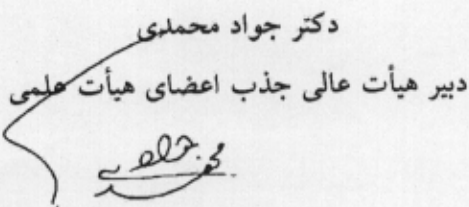 دکتر جواد محمدی
دبیر هیأت عالی جذب اعضای هیأت علمی